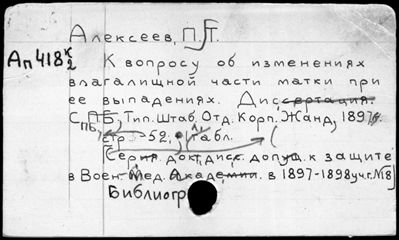 Алексеев, П.П.
Ап418 к/2
К вопросу об изменениях
влагалищной части матки при
ее выпадениях. Диссертация.
СПБ, Тип. Штаб. Отд. Корп. Жанд, 1897
стр. 52, 1 табл.
(Серия докт. дисс. допущ. к защите
в Воен. Мед. Академии. в 1897-1898 уч.г. №8)
Библиогр